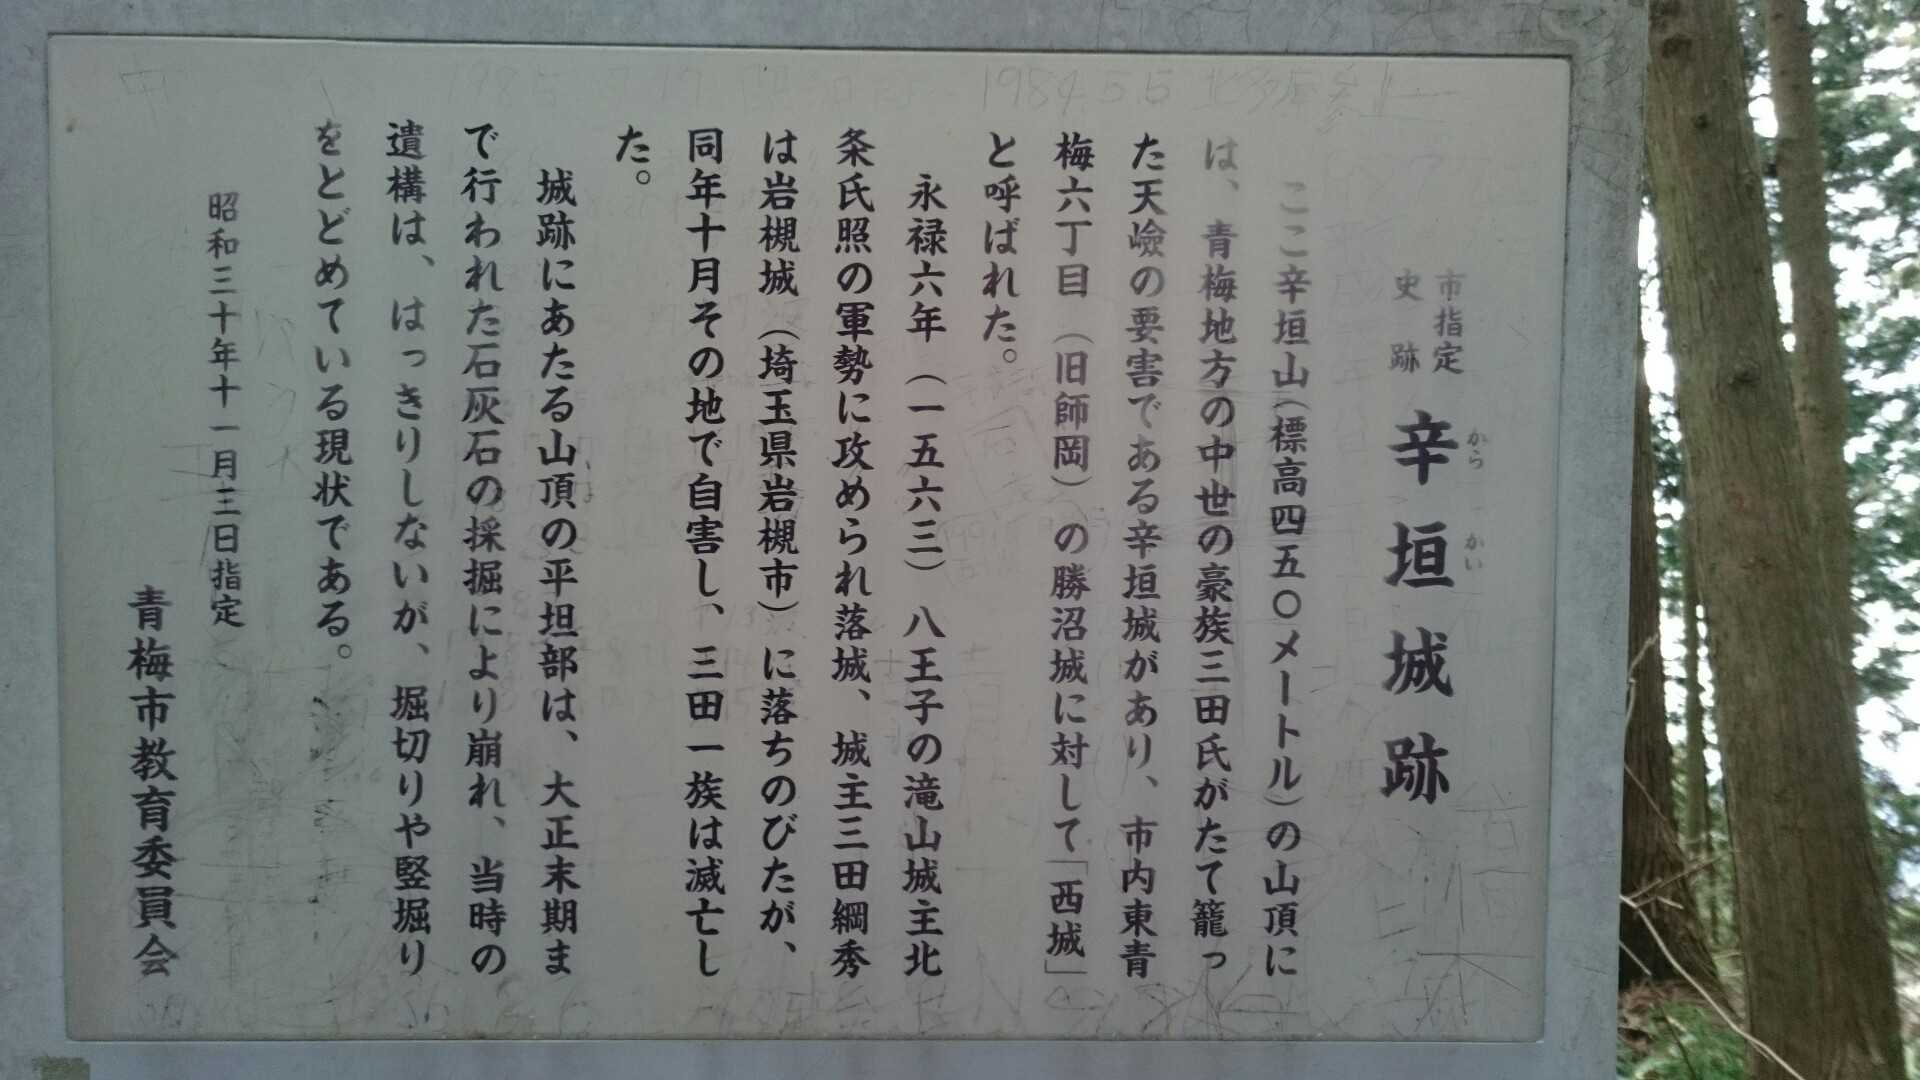 市指定
史跡
辛垣城跡
から　かい
ここ辛垣山(標高四五〇メートル)の山頂に
は、青梅地方の中世の豪族三田氏がたて籠っ
た天嶮の要害である辛垣城があり、市内東青
梅六丁目(旧師岡)の勝沼城に対して「西城」
と呼ばれた。
永禄六年(一五六三)八王子の滝山城主北
条氏照の軍勢に攻められ落城、城主三田綱秀
は岩槻城(埼玉県岩槻市)に落ちのびたが、
同年十月その地で自害し、三田一族は滅亡し
た。
城跡にあたる山頂の平坦部は、大正末期ま
で行われた石灰石の採掘により崩れ、当時の
遺構は、はっきりしないが、堀切りや竪堀り
をとどめている現状である。
昭和三十年十一月三日指定
青梅市教育委員会
1984.5.5